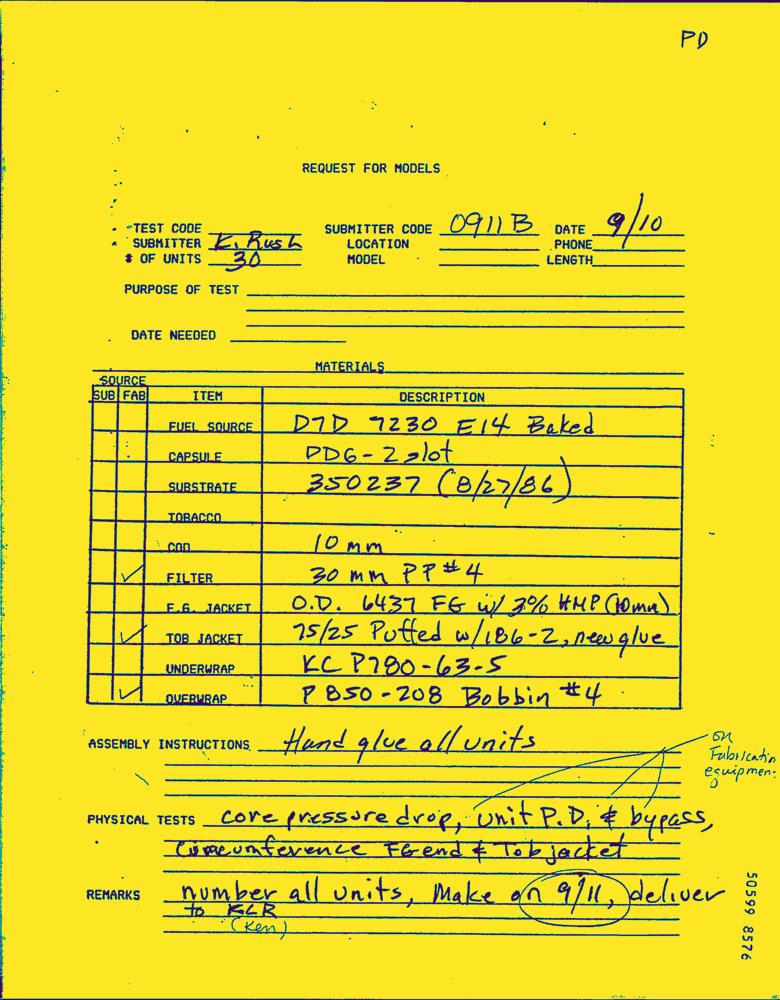 PD
REQUEST FOR MODELS
TEST CODE SUBMITTER CODE 0911B DATE 9/10
SUBMITTER K. Rush LOCATION PHONE
# OF UNITS 30 MODEL LENGTH
PURPOSE OF TEST
DATE NEEDED
MATERIALS
SOURCE
SUB FAB ITEM DESCRIPTION
FUEL SOURCE D7D 7230 E14 Baked
CAPSULE DD6-2 slot
SUBSTRATE 350237 (8/27/86)
TOBACCO
COD 10 mm
✓ FILTER 30 mm PP #4
F.G. JACKET O.D. 6437 FG w/ 3% HMP (10mm)
✓ TOB JACKET 75/25 Puffed w/186-2, new glue
UNDERWRAP KC P780-63-5
✓ OVERWRAP P 850-208 Bobbin #4
ASSEMBLY INSTRUCTIONS Hand glue all units
on
Fabrication
equipment
PHYSICAL TESTS core pressure drop, unit P.D. & bypass,
Circumference FG end & Tob jacket
REMARKS number all units, Make on 9/11, deliver
to KLR
(Ken)
50599 8576